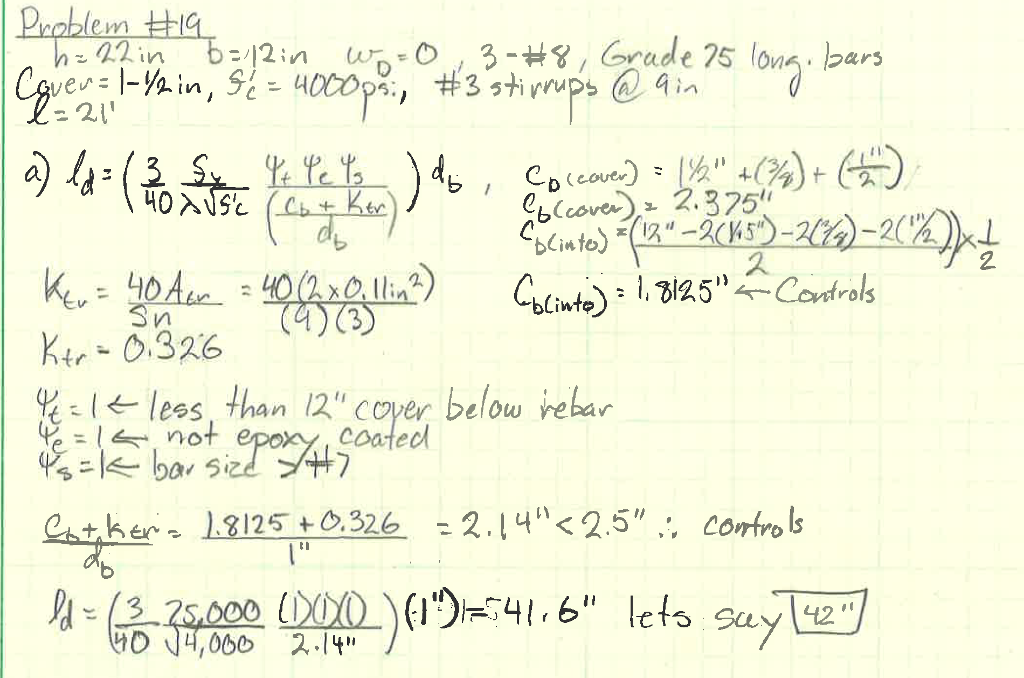 Problem #19
h=22in b=12in w_D=0, 3-#8, Grade 75 long. bars
Cover=1-1/2in, f'c = 4000psi, #3 stirrups @ 9in
l=21'
a) l_d = (3/40 f_y/(λ√f'c) Ψ_t Ψ_e Ψ_s/((C_b + K_tr)/d_b)) d_b,
C_b(cover) = 1 1/2" + (3/8) + (1"/2)
C_b(cover) = 2.375"
C_b(into) = (12" - 2(1.5") - 2(3/8) - 2(1"/2))/2 × 1/2
C_b(into) = 1.8125" ← Controls
K_tr = 40A_tr/Sn = 40(2×0.11in²)/(9)(3)
K_tr = 0.326
Ψ_t = 1 ← less than 12" cover below rebar
Ψ_e = 1 ← not epoxy coated
Ψ_s = 1 ← bar size > #7
(C_b + K_tr)/d_b = (1.8125 + 0.326)/1" = 2.14" < 2.5" ∴ controls
l_d = (3/40 75,000/√4,000 (1)(1)(1)/2.14") (1") = 41.6" lets say 42"